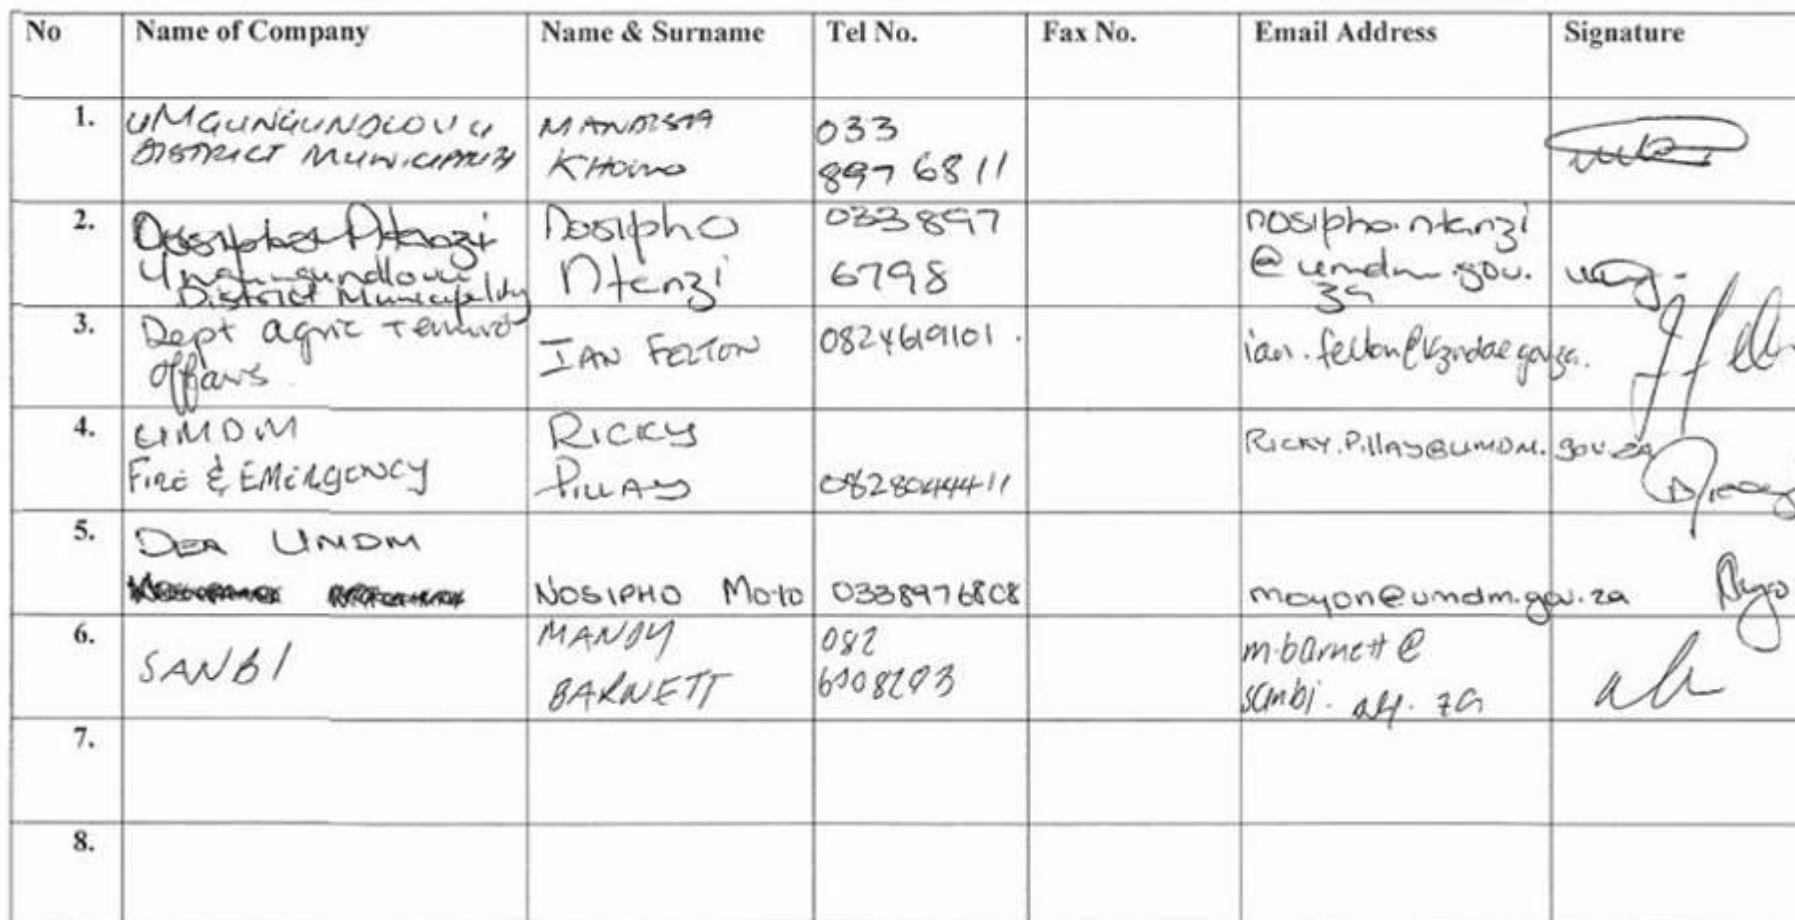 No Name of Company Name & Surname Tel No. Fax No. Email Address Signature
1. UMGUNGUNDLOVU DISTRICT MUNICIPALITY MANDISA KHOMO 033 897 6811
2. Nosipho Ntenzi
Umgungundlovu District Municipality Nosipho Ntenzi 033 897 6798 nosipho.ntenzi @ umdm.gov.za
3. Dept agric Affairs IAN FELTON 0824619101. ian.felton@kzndae.gov.za.
4. UMDM FIRE & EMERGENCY RICKY PILLAY 0828044411 RICKY.PILLAY@UMDM.gov.za
5. DEA UMDM
NOSIPHO Moyo 0338976808 moyon@umdm.gov.za
6. SANBI MANDY BARNETT 082 m.barnett@ sanbi.org.za
7.
8.